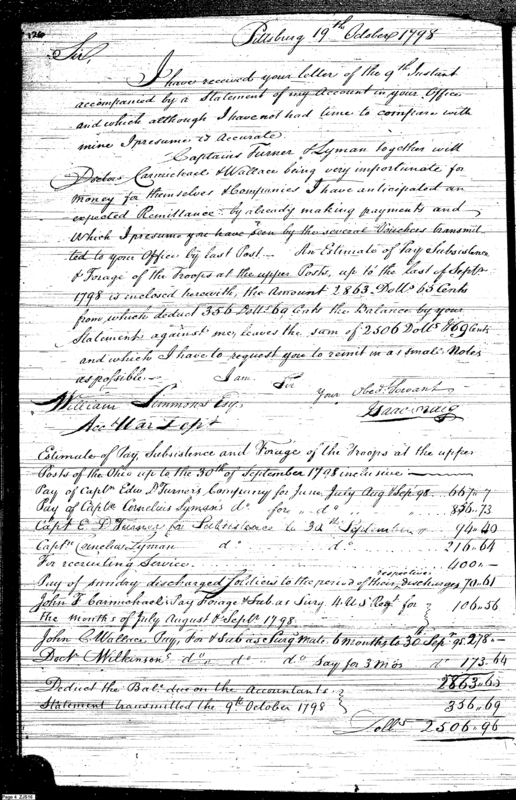 126
Pittsburg 19th October 1798
Sir,
I have received your letter of the 9th Instant
accompanied by a Statement of my Account in your Office
and which although I have not had time to compare with
mine I presume is Accurate
Captains Turner & Lyman together with
Doctors Carmichael & Wallace being very importunate for
money for themselves & Companies I have anticipated an
expected Remittance by already making payments and
which I presume you have seen by the several Vouchers transmit
ted to your Office by last Post. An Estimate of Pay Subsistence
& Forage of the Troops at the upper Posts, up to the last of Septr
1798 is inclosed herewith, the Amount 2863 Dolls 65 Cents
from which deduct 356 Dolls 69 Cents the Balance by your
Statement against me, leaves the sum of 2506 Dolls 96 Cents
and which I have to request you to remit in as small Notes
as possible.
I am Sir
Your Obedt. Servant
Isaac Craig
William Simmons Esq.
Acct War Dept
Estimate of Pay, Subsistence and Forage of the Troops at the upper
Posts of the Ohio up to the 30th of September 1798 inclusive
Pay of Captn. Edwd D. Turner's Company for June, July Augt & Sep. 98 667.. 7
Pay of Captn Cornelius Lyman's do for " do " 856..73
Captn E. D. Turner for Subsistence to 30th September 94..40
Captn Cornelius Lyman do do 216..64
For recruiting Service 400..
Pay of sundry discharged Soldiers to the period of their respective Discharges 70..61
John F. Carmichael Pay Forage & Sub. as Surg. 4 U.S. Regt. for
the months of July August & Septr 1798 106..56
John C. Wallace Pay, For & Sub as Surgs Mate 6 months to 30th Sepr 98 278..
Doctr Wilkinson's do do do say for 3 Mos do 173..64
2863..65
Deduct the Bale. due on the Accountants
Statement transmitted the 9th October 1798 356..69
Dolls 2506..96